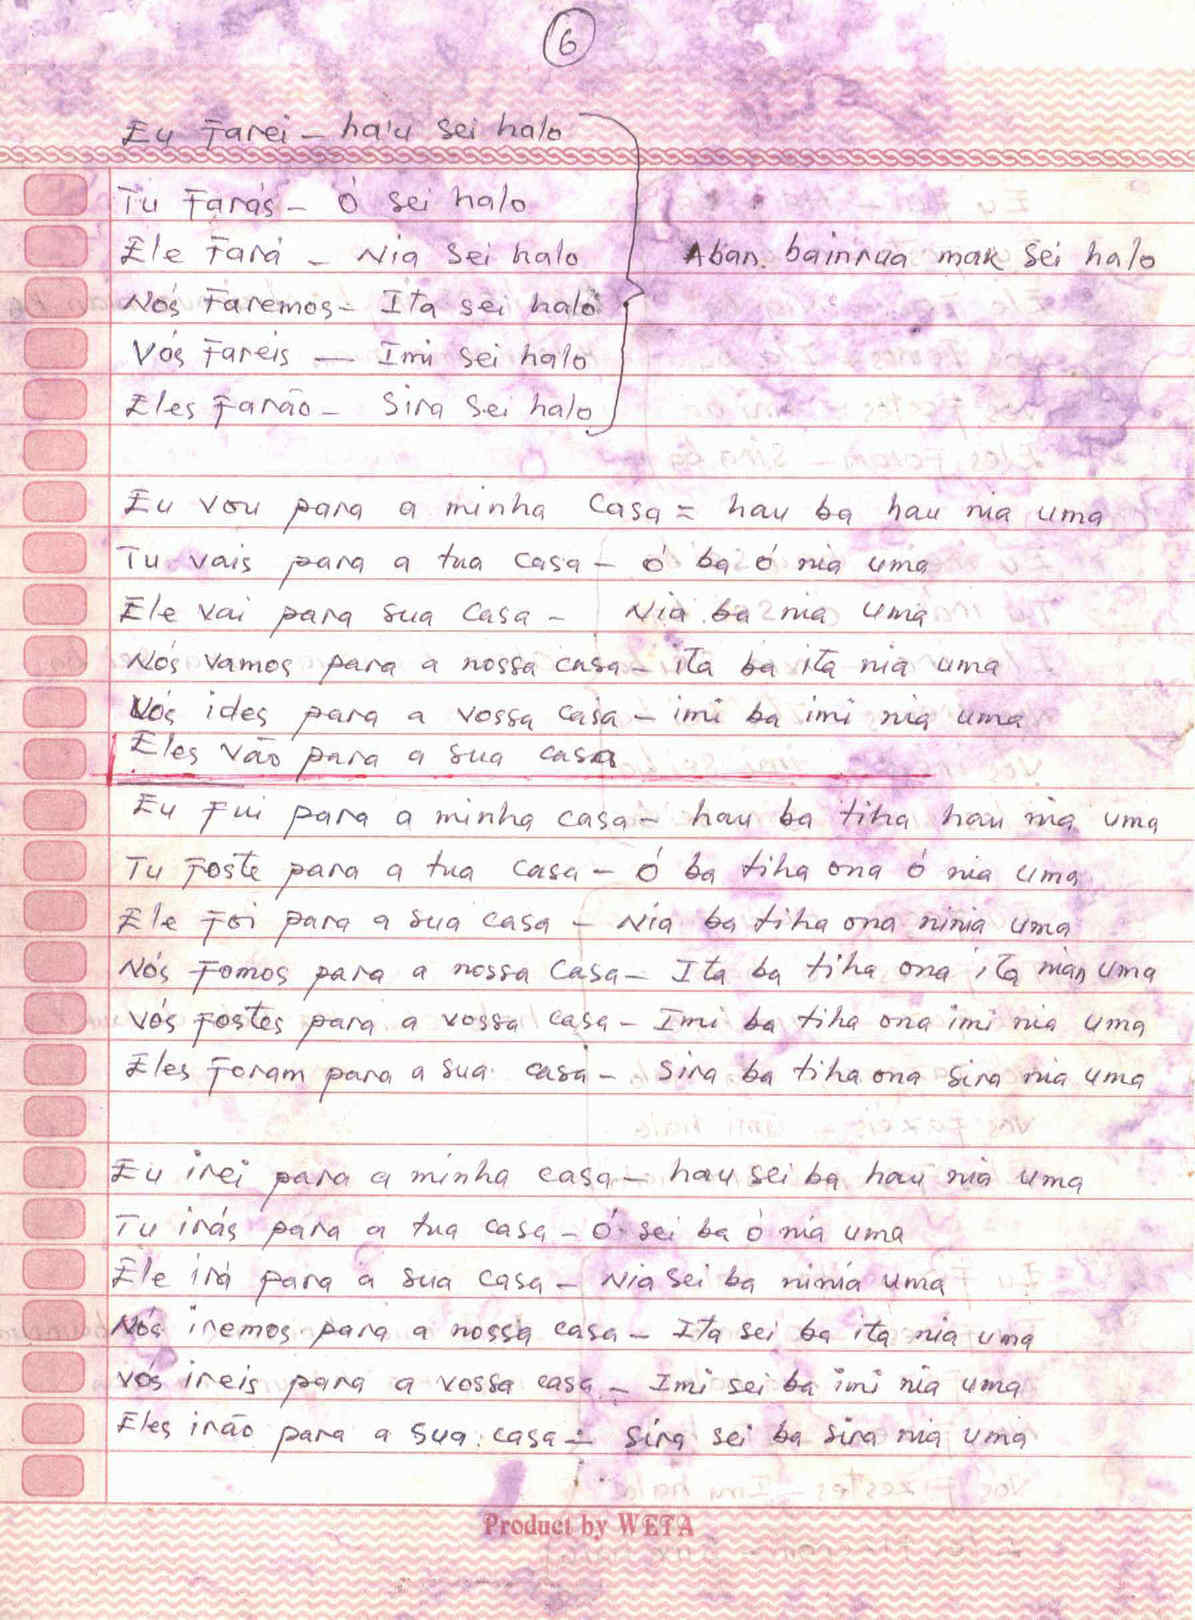 6
Eu Farei - ha'u sei halo
Tu Farás - Ó sei halo
Ele Fará - Nia sei halo
Aban bainrua mak sei halo
Nós Faremos - Ita sei halo
Vós Fareis - Imi sei halo
Eles Farão - Sira sei halo
Eu vou para a minha casa = hau ba hau nia uma
Tu vais para a tua casa - ó ba ó nia uma
Ele vai para sua casa - Nia ba nia uma
Nós vamos para a nossa casa - ita ba ita nia uma
Vós ides para a vossa casa - imi ba imi nia uma
Eles vão para a sua casa
Eu Fui para a minha casa - hau ba tiha hau nia uma
Tu Foste para a tua casa - Ó ba tiha ona ó nia uma
Ele Foi para a sua casa - Nia ba tiha ona ninia uma
Nós Fomos para a nossa casa - Ita ba tiha ona ita nian uma
Vós Fostes para a vossa casa - Imi ba tiha ona imi nia uma
Eles Foram para a sua casa - Sira ba tiha ona sira nia uma
Eu irei para a minha casa - hau sei ba hau nia uma
Tu irás para a tua casa - Ó sei ba ó nia uma
Ele irá para a sua casa - Nia sei ba ninia uma
Nós iremos para a nossa casa - Ita sei ba ita nia uma
Vós ireis para a vossa casa - Imi sei ba imi nia uma
Eles irão para a sua casa - Sira sei ba sira nia uma
Product by WETA